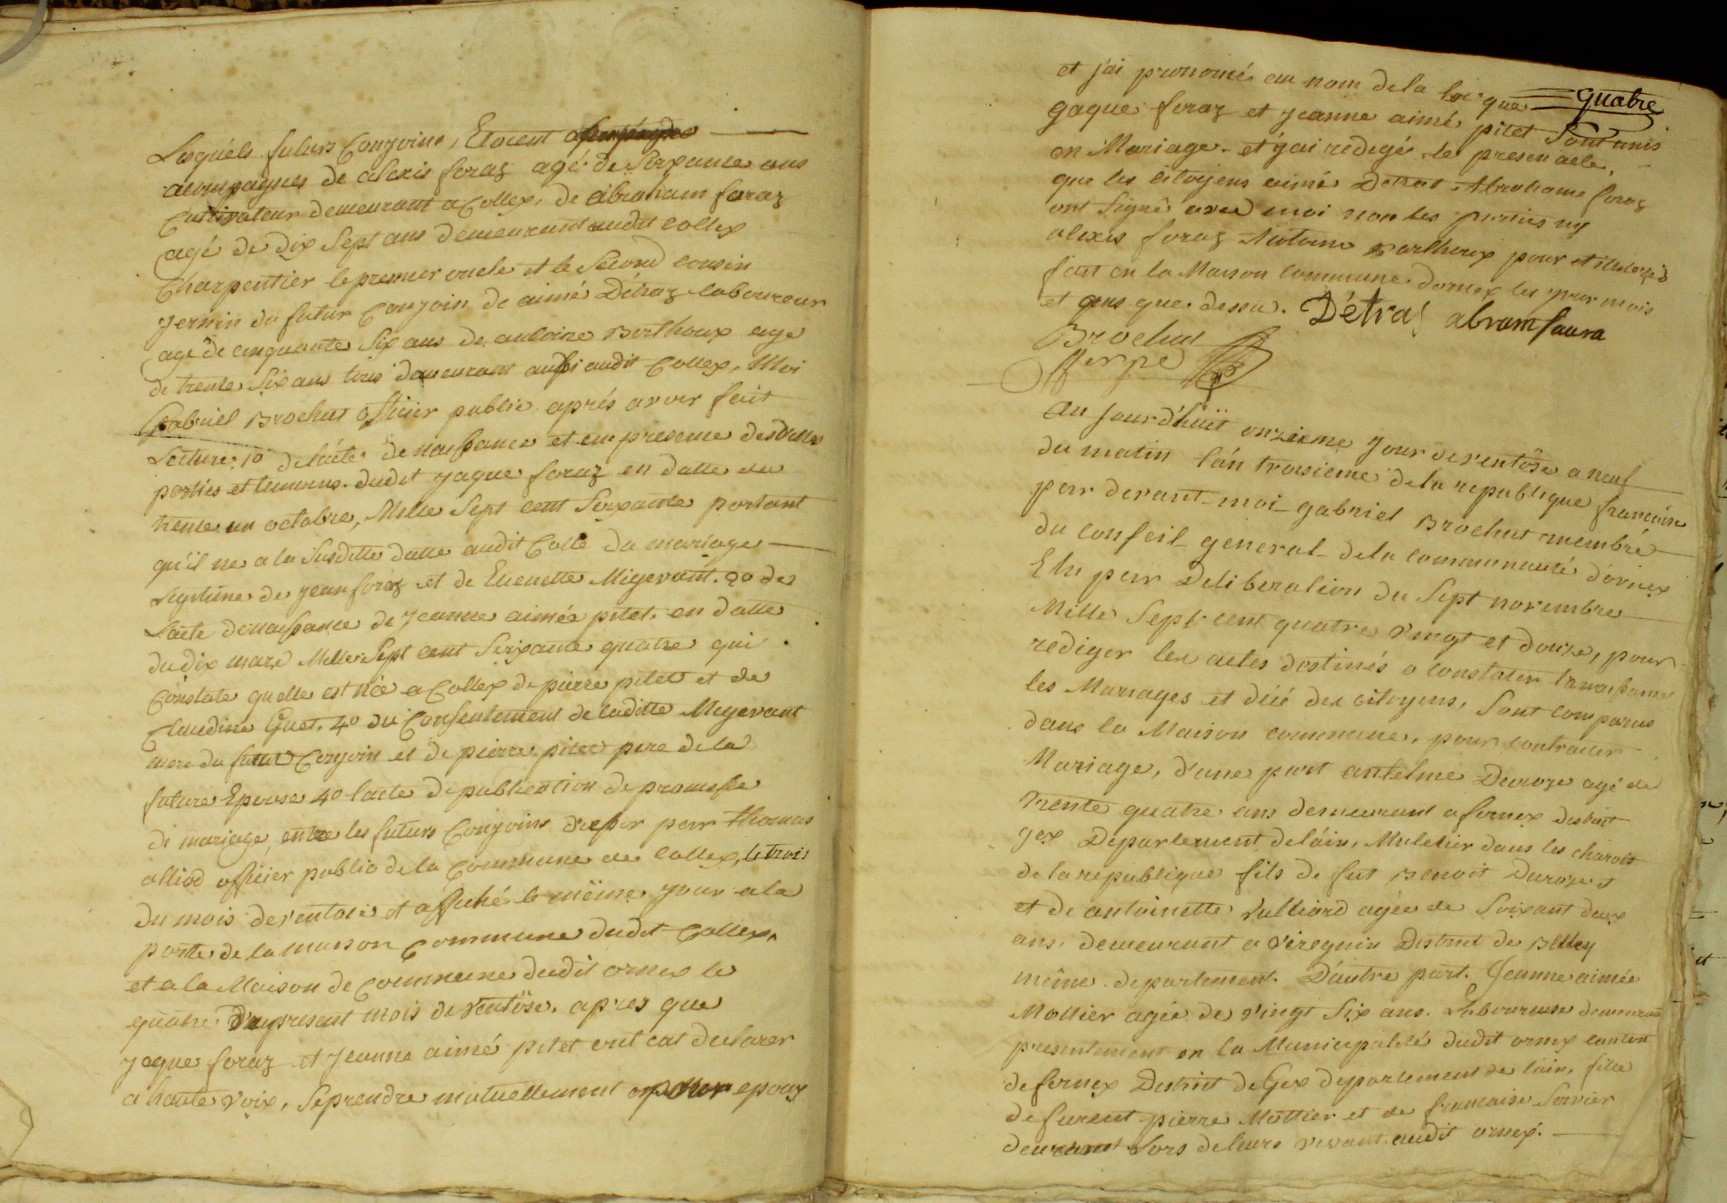 Lesquels futurs Conjoins, Etoient
acompagnés de alexis foraz agé de Soixante ans
Cultivateur demeurant a Collex, de abraham foraz
agé de dix Sept ans demeurant audit collex
Charpentier le premier oncle et le Second cousin
germin du futur Conjoin de aimé Détraz laboureur
agé de cinquante Six ans de antoine Berthoux age
de trente Six ans tous demeurant aussi audit Collex, Moi
Gabriel Brochut officier public aprés avoir fait
Lecture, 1º de l'acte de naissance et en presence des dittes
parties et temoins dudit jaque foraz en datte du
trente un octobre, Mille Sept cent Soixante portant
qu'il ne a la Susditte datte audit Colle du mariage
Legitime de jean foraz et de Etienette Migevant. 20 de
Lacte denaissance de jeanne aimée pitet en datte
du dix mars Mille Sept cent Soixante quatre qui
Constate quelle est née a Collex de pierre pitett et de
Claudine Guet. 4º du Consentement de laditte Megevant
mere du futur Conjoin et de pierre pitet pere de la
future Epouse 4º lacte de publication de promesse
de mariage entre les futurs Conjoins par Thomas
alliod officier public de la Commune de Collex, le trois
du mois de ventose et affiché le même jour a la
porte de la maison Commune dudit Collex,
et a la Maison de Commune dudit ornex le
quatre du present mois de ventôse. apres que
jaque foraz et jeanne aimé pitet ont eut declarer
a haute voix, Seprendre mutuellement pour epoux
quatre
et j'ai prononcé au nom de la loi que
jaque foraz et jeanne aimé pitet Sont unis
en Mariage. et j'ai redegé le presen acte,
que les citoyens aimé Detraz Abrahame foraz
ont Signé avec moi non les parties ny
alexis foraz Antoine Barthoux pour
fait en la Maison Commune dornex les jour mois
et ans que dessu. Détraz abram faura
Brochut
Au Jourd'huit onzieme Jour de ventôse a neuf
du matin l'an troisieme dela republique francaise
par devant moi gabriel Brochut membre
du conseil general dela communauté d'ornex
Elu par Deliberation du Sept novembre
Mille Sept cent quatre vingt et douze, pour
rediger les actes destinés a constater la naissance
les Mariages et décé des citoyens, Sont comparus
dans la Maison commune, pour contracter
Mariage, d'une part antelme Duroze agé de
trente quatre ans demeurant a fernex district
gex Departement de láin, Muletier dans les charois
de la republique fils de fut Benoit Duroze
et de antoinette Vulliord agée de Soixant deux
ans, demeurant a Viregnin District de Belley
même departement. D'autre part. Jeanne aimée
Mottier agée de Vingt Six ans. Laboureuse demeurant
presentement en la Municipalité dudit ornex canton
de fernex District de Gex departement de lain, fille
de furent pierre Mottier et de francoise Sorvier
demeurant Lors de leurs vivant audit ornex.